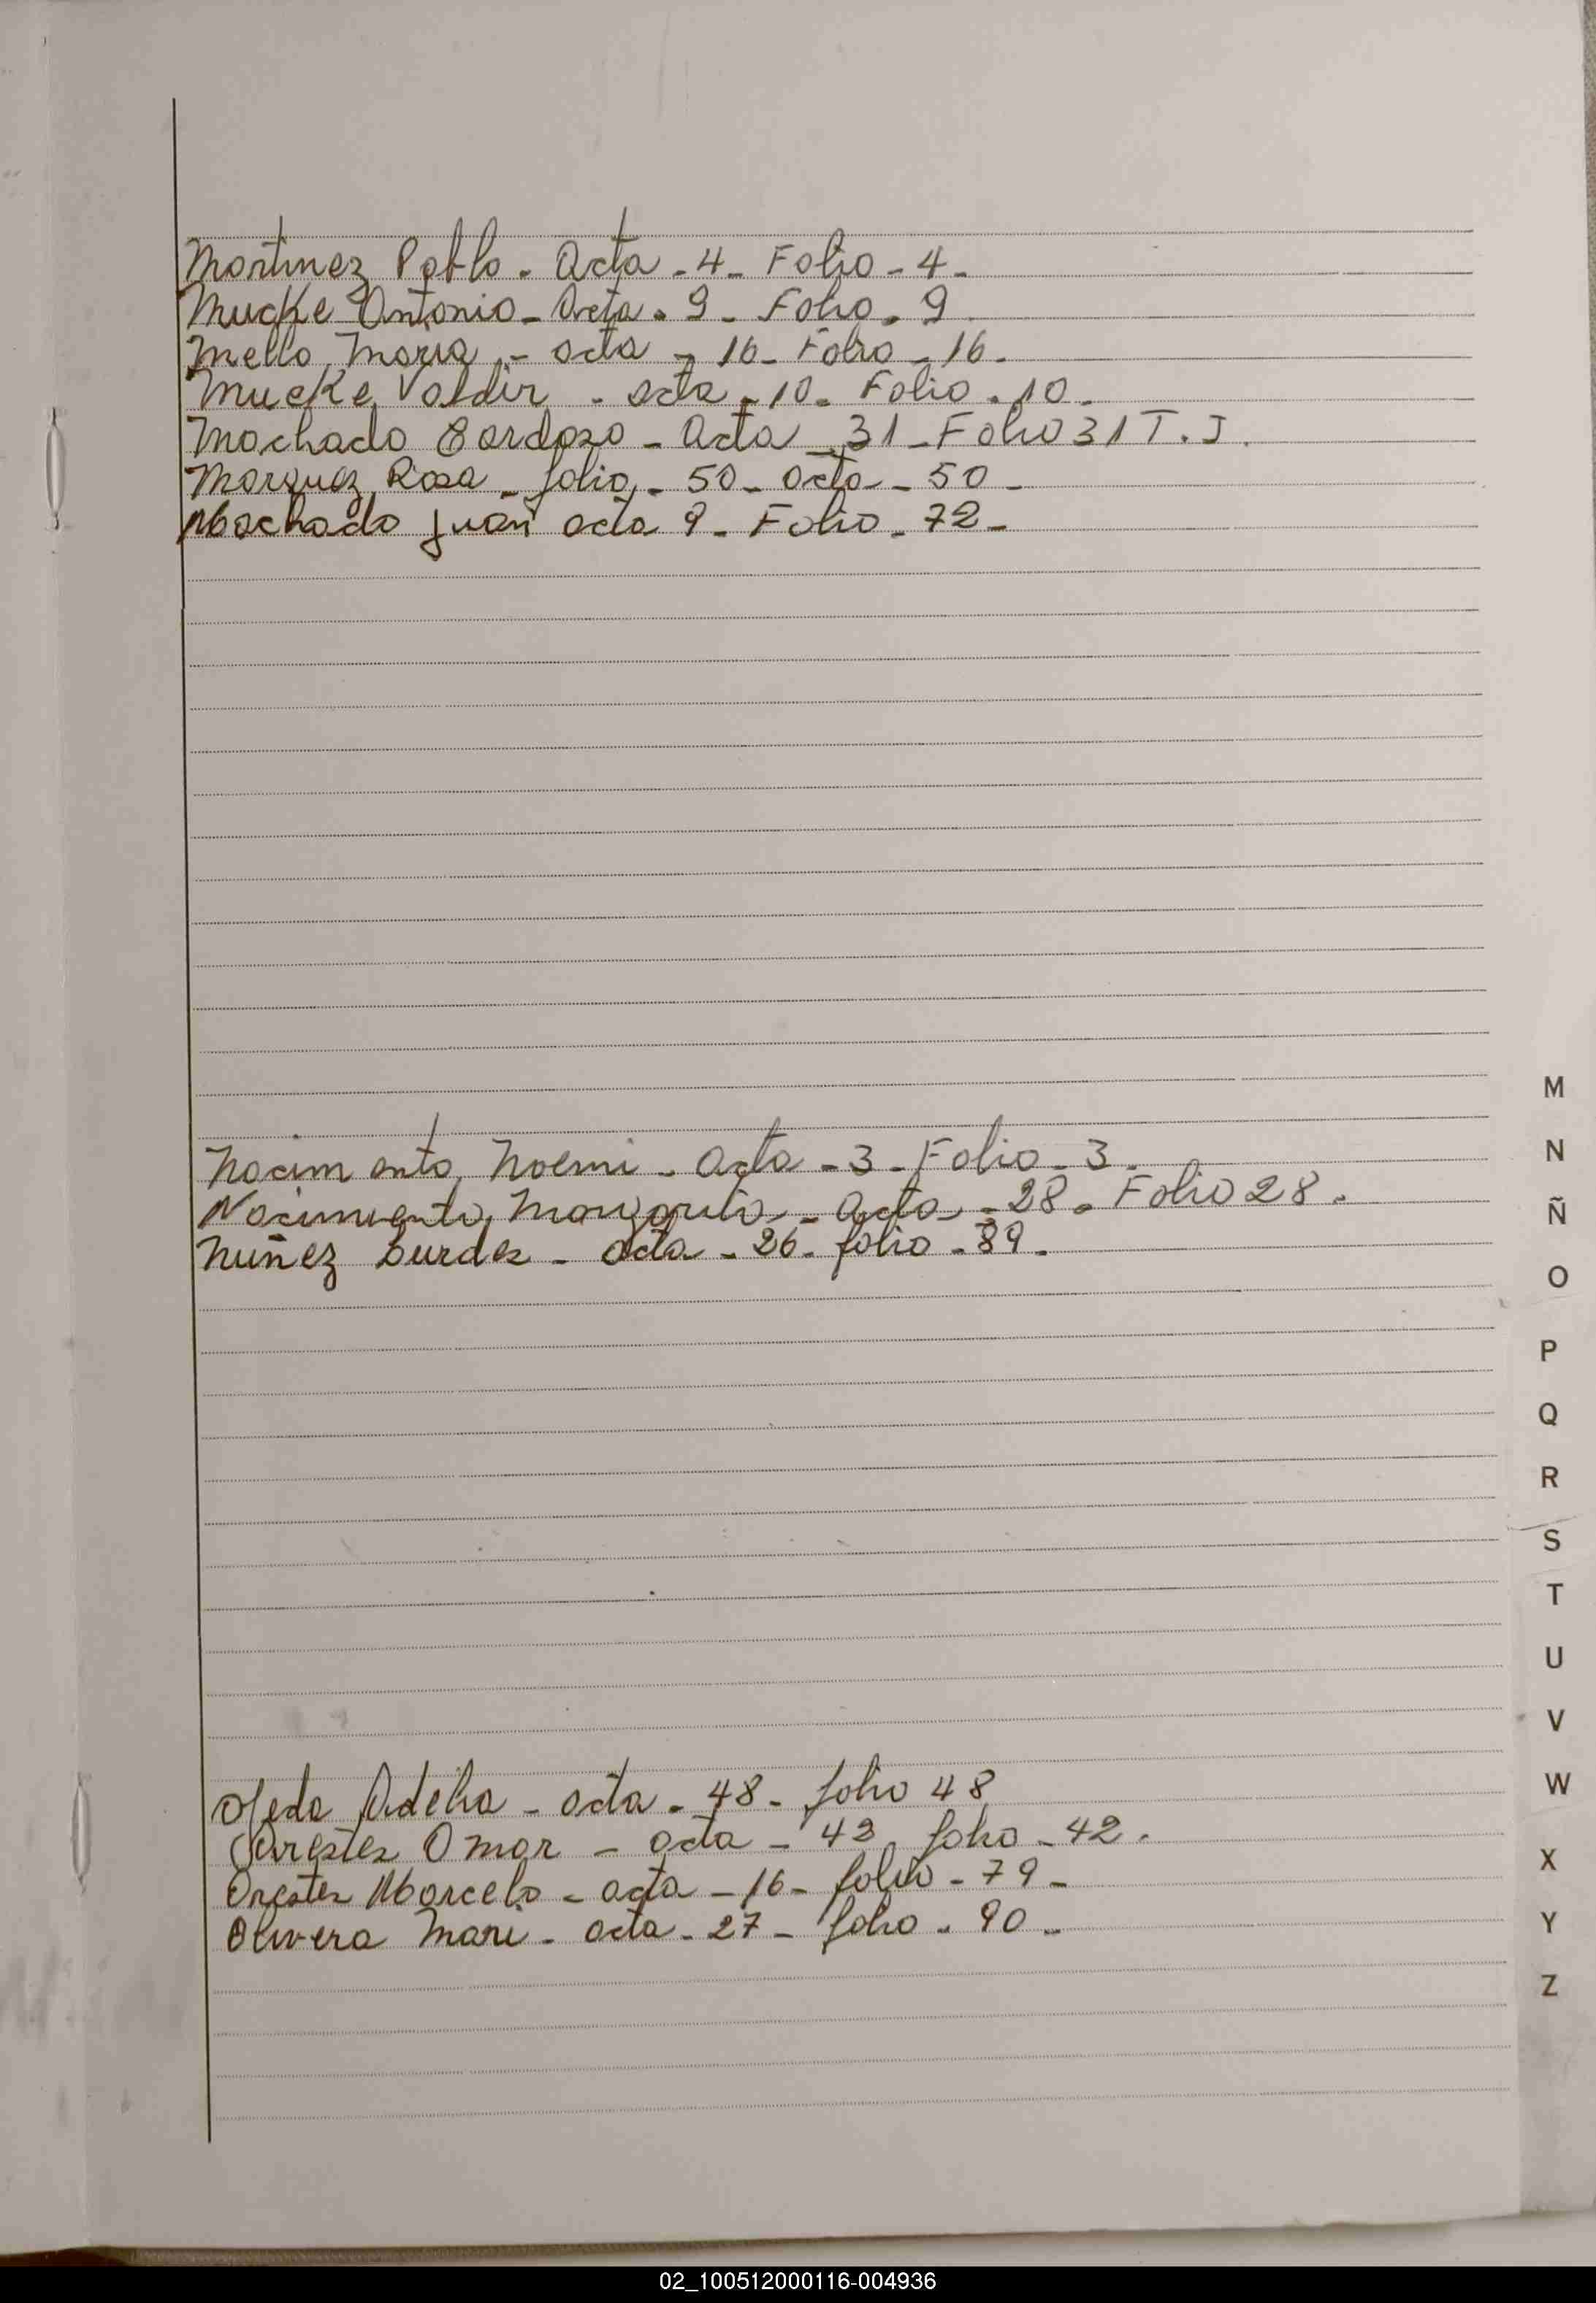 Martinez Pablo - Acta - 4 - Folio - 4 -
Mucke Antonio - Acta - 9 - Folio - 9
Mello Maria - acta - 16 - Folio - 16 -
Mucke Valdir - acta - 10 - Folio - 10 -
Machado Cardozo - Acta 31 - Folio 31 T. J.
Marquez Rosa - folio - 50 - acta - 50 -
Machado Juan acta 9 - Folio - 72 -
Nacimento Noemi - Acta - 3 - Folio - 3 -
Nacimiento, Margarita - Acta - 28 - Folio 28 -
Nuñez Lurdes - acta - 26 - folio - 89 -
Ojeda Adelia - acta - 48 - folio 48
Orestes Omar - acta - 42, folio - 42 -
Orestes Marcelo - acta - 16 - folio - 79 -
Olivera Mari - acta - 27 - folio - 90 -
M
N
Ñ
O
P
Q
R
S
T
U
V
W
X
Y
Z
02_100512000116-004936